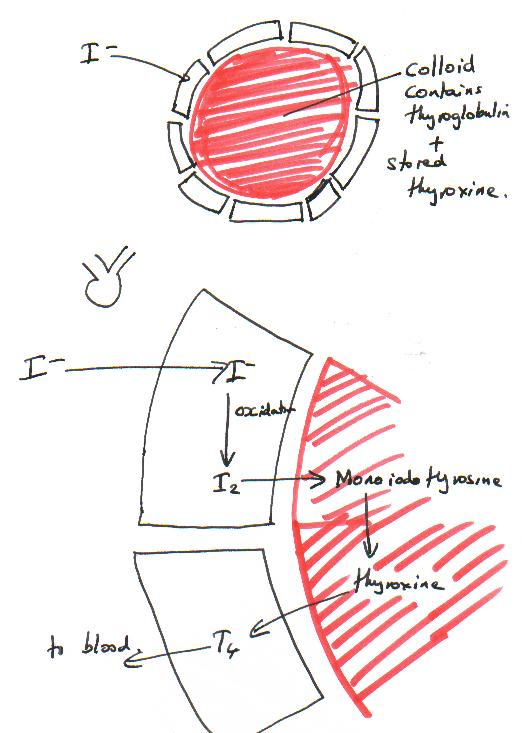 I⁻
colloid
contains
thyroglobulin
+
stored
thyroxine.
I⁻
I⁻
oxidation
I₂
Monoiodotyrosine
thyroxine
T₄
to blood.